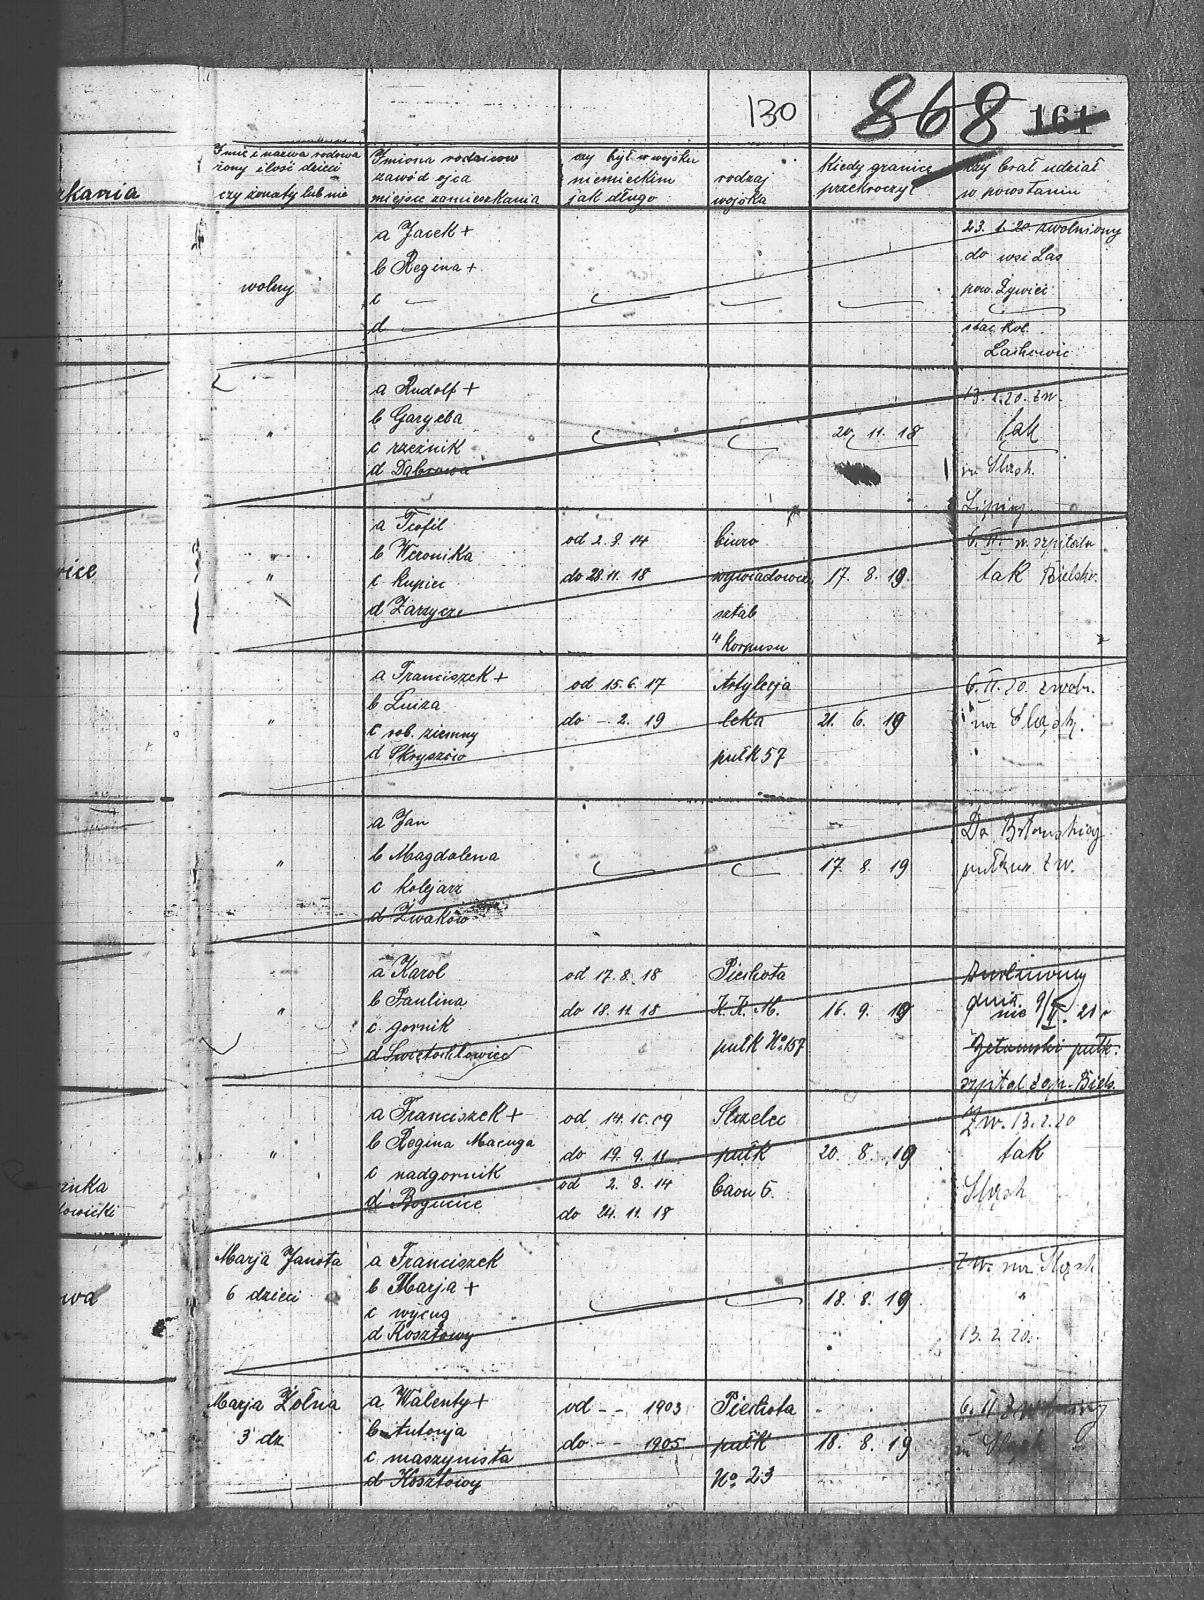 130 868 161
Imię i nazwa rodowa
żony i ilość dzieci
czy żonaty lub nie
Imiona rodziców
zawód ojca
miejsce zamieszkania
czy był w wojsku
niemieckim
jak długo
rodzaj
wojska
kiedy granice
przekroczył
czy brał udział
w powstaniu
zkania
wolny
a Jacek +
b Regina +
c —
d —
23. 1. 20 zwolniony
do wsi Las
pow. Żywiec
stac. kol.
Lachowic
"
a Rudolf +
b Garycba
c rzeźnik
d Dąbrowa
20. 11. 18
13. 2. 20. zw.
tak
na Śląsk.
Lipiny
wice
"
a Teofil
b Weronika
c kupiec
d Zarzycze
od 2. 8. 14
do 28. 11. 18
biuro
wywiadowcze
sztab
4 Korpusu
17. 8. 19.
6. II. w szpitalu
tak Bielsko.
"
a Franciszek +
b Luiza
c rob. ziemny
d Skryszów
od 15. 6. 17
do - 2. 19
Artylerja
lekka
pułk 57
21. 6. 19
6. II. 20. zwoln.
na Śląsk.
"
a Jan
b Magdalena
c kolejarz
d Zwaków
17. 8. 19
Do
pułku zw.
"
a Karol
b Paulina
c gornik
d Świętochłowice
od 17. 8. 18
do 18. 11. 18
Piechota
K. K. M.
pułk No 157
16. 9. 19
dnia 9/II. 21
nie
pułk.
szpital zap. Biels.
"
a Franciszek +
b Regina Macuga
c nadgornik
d Bogucice
od 14. 10. 09
do 19. 9. 11
od 2. 8. 14
do 24. 11. 18
Strzelec
pułk
baon 6.
20. 8. 19
Zw. 13. 2. 20
tak
Śląsk
zinka
łowicki
Marja Janota
6 dzieci
a Franciszek
b Marja +
c wycug
d Kosztowy
18. 8. 19
Zw. na Śląsk
"
13. 2. 20.
wa
Marja Żołna
3 dz
a Walenty +
b Antonja
c maszynista
d Kosztowy
od - - 1903
do - - 1905
Piechota
pułk
No. 23
18. 8. 19
6. II
na Śląsk